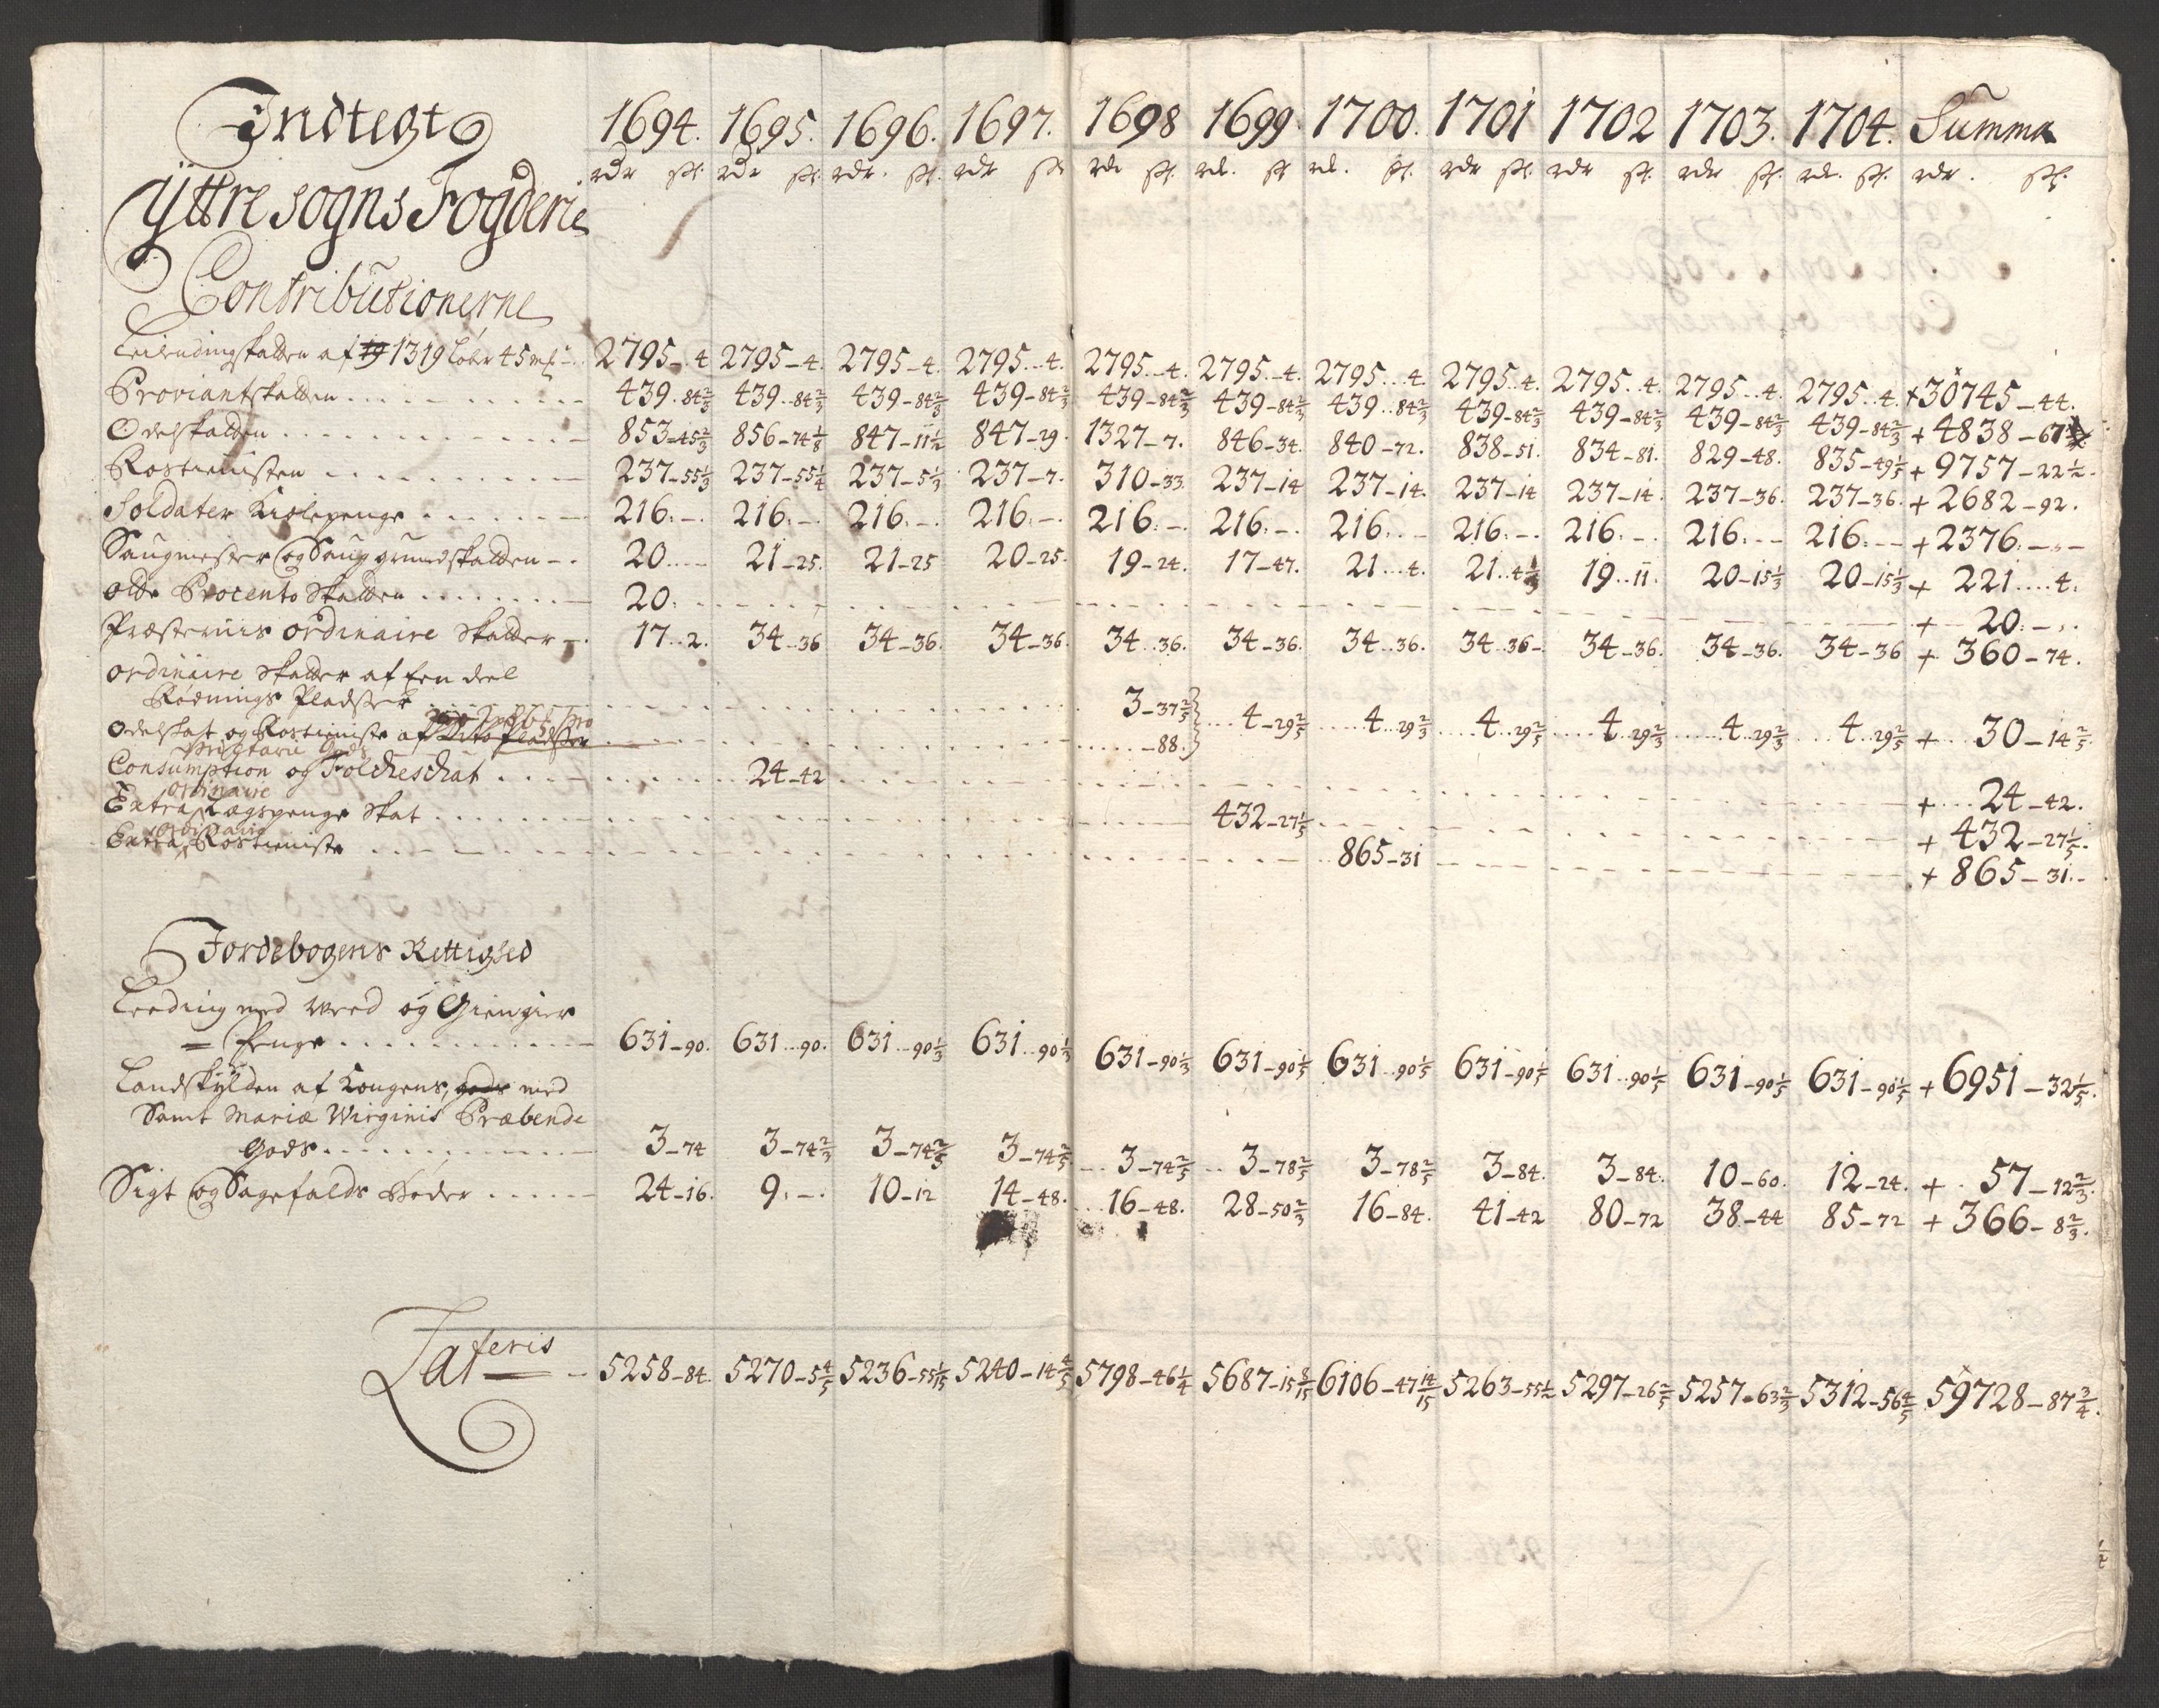 Indtegt 1694. 1695. 1696. 1697. 1698 1699 1700. 1701 1702 1703. 1704. Summa
rdr sk. rdr sk. rdr. sk. rdr sk rdr sk. rd. sk rd. sk. rdr sk. rdr sk. rdr sk. rd. sk. rdr. sk.
Yttre sogns Fogderie
Contributionerne
Leilendingskatten af 1319 Løber 45 mk 2795-4 2795-4. 2795-4. 2795..4. 2795.-4. 2795.-4. 2795...4. 2795..4. 2795..4. 2795...4. 2795..4. +30745-44.
Proviantskatten 439.84 2/3 439..84 2/3 439-84 2/3 439-84 2/3 439-84 2/3 439-84 2/3 439..84 2/3 439-84 2/3 439-84 2/3 439-84 2/3 439-84 2/3 +4838-67
Odelskatten 853-45 2/3 856-74 1/8 847-11 1/2 847-29. 1327-7. 846-34. 840-72. 838-51. 834-81. 829-48. 835-49 1/5 +9757-22 1/2.
Rostienisten 237-55 1/3 237-55 1/4 237-5 1/3 237-7. 310-33 237-14 237-14. 237-14 237-14. 237-36. 237-36. +2682-92.
Soldater Kiolepenge 216.-. 216.-. 216.-. 216.-. 216.-. 216.-. 216.-. 216.-. 216.-. 216.-- 216.-- +2376.---
Saugmester og Saug grundskatten 20.... 21-25. 21-25 20-25. 19-24. 17-47. 21...4. 21..4 1/3 19..11. 20-15 1/3 20-15 1/3 + 221....4.
otte Procento Skatten 20. + 20.-..
Præsternis ordinaire Skatter 17..2. 34-36 34-36. 34-36. 34..36. 34-36. 34..36. 34..36- 34-36. 34-36. 34-36 + 360-74.
ordinaire Skatter af een deel
Rødnings Pladser 3-37 2/5 4-29 2/5 4..29 2/3 4..29 2/5 4..29 2/3 4..29 2/3 4..29 2/5 + 30-14 2/5.
Odelskat og Rostieniste af Ditto Pladser -88.
Consumption og Folcheschat 24-42 + 24-42.
ordinaire
Extra Lægspenge Skat 432-27 1/5 +432-27 1/5.
ordinaire
Extra Rostieniste 865-31 +865-31.-
Jordebogens Rettighed
Leeding med Wred og Giengier
= Penge 631-90. 631..90. 631..90 1/3 631..90 1/3 631-90 1/3 631-90 1/5 631..90 1/5 631-90 1/5 631..90 1/5 631-90 1/5 631-90 1/5 +6951-32 1/5.
Landskylden af Kongens, gods med
Samt Mariæ Wirginis Præbende
Gods 3-74 3-74 2/3 3-74 2/5 3-74 2/5 3-74 2/5 3-78 2/5 3-78 2/5 3-84. 3-84. 10-60. 12-24. + 57-12 2/3.
Sigt og Sagefalds Bøder 24-16. 9.-. 10-12 14-48. 16-48. 28-50 2/3 16-84. 41-42 80-72 38-44 85-72 +366-8 2/3.
Lateris 5258-84. 5270-5 4/5 5236-55 1/15 5240-14 4/5 5798-46 1/4 5687-15 8/15 6106-47 14/15 5263-55 1/2 5297-26 2/5 5257-63 2/3 5312-56 4/5 59728-87 3/4.